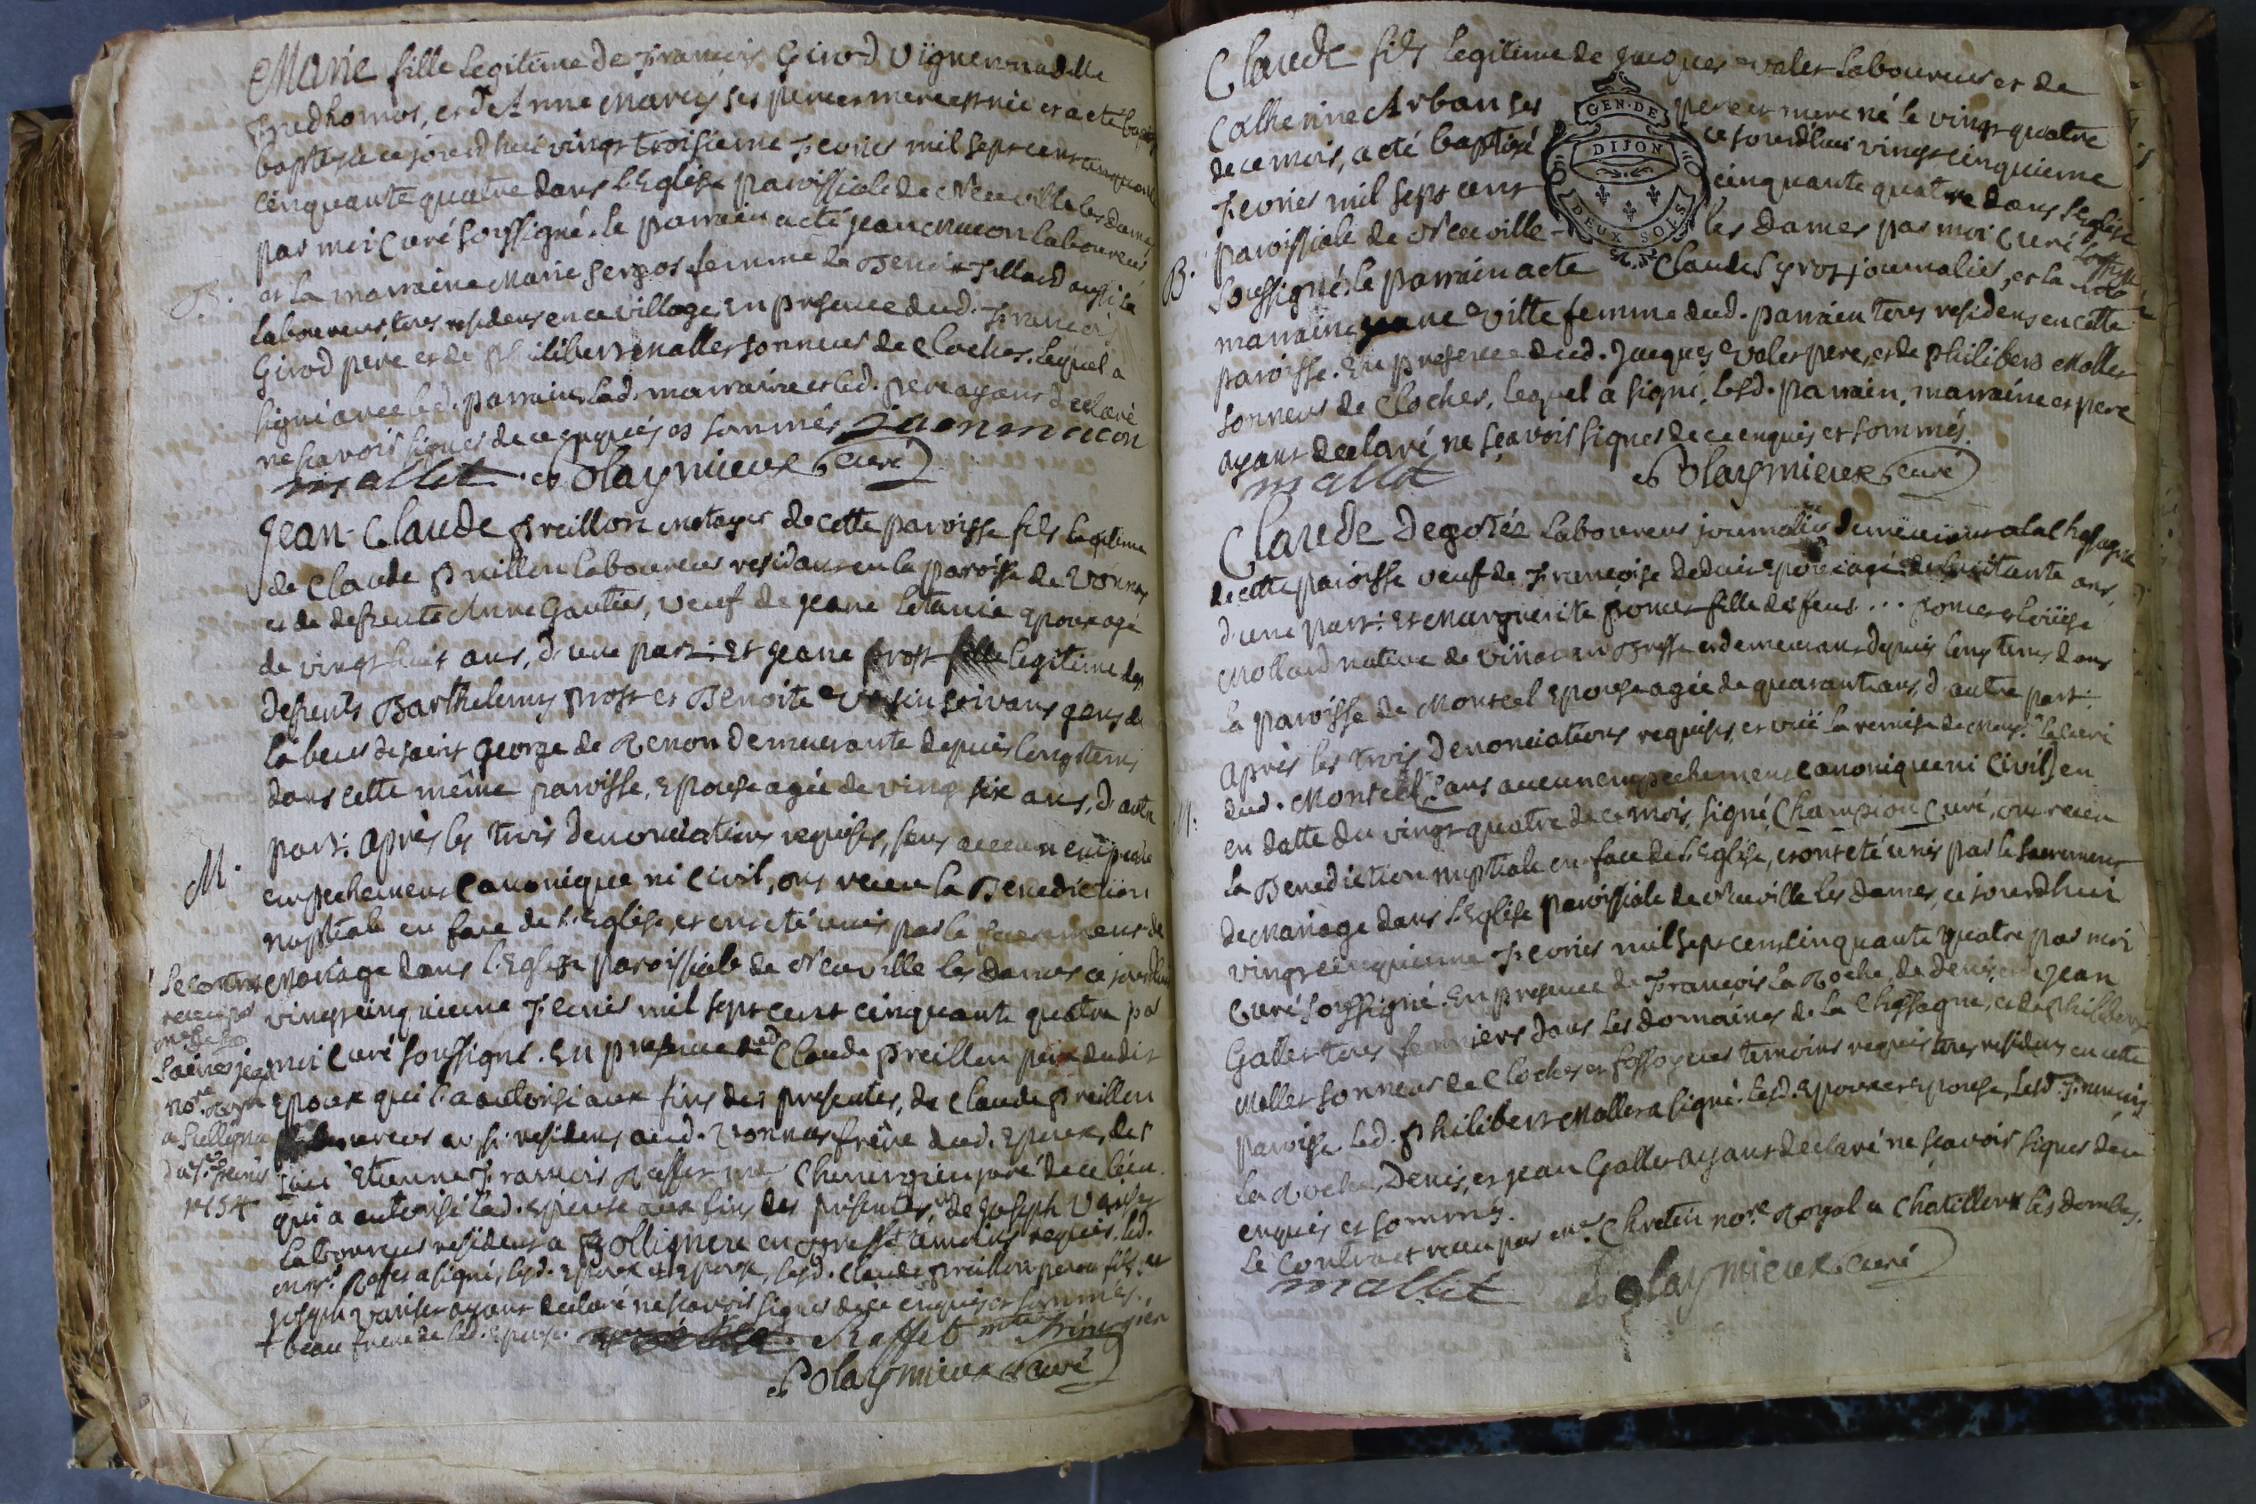 Marie fille legitime de François Girod Vigneron
Predhomos, et de Anne Marey ses pere et mere est née et a eté
baptisée ce jourd'hui vingt troisieme Fevrier mil sept cent
cinquante quatre dans l'Eglise paroissiale de Neuville les dames
par moi Curé soussigné. le parrain a eté jean laboureur
et la marraine Marie femme de Benoit
B.
laboureur tous residens en ce village. En presence dud. François
Girod pere et de philibert Mallet sonneur de Cloches. lequel a
signé avec led. parrain, lad. marraine et led. pere ayans declaré
ne sçavoir signer de ce enquis et sommés
mallet curé
Jean-Claude Preillon de cette paroisse fils legitime
de Claude Preillon laboureur residant en la paroisse de Vonnas
et de deffunte Anne Gautier, veuf de jeane Epoux agé
de vingt huit ans, d'une part: Et jeane Prost fille legitime des
deffunts Barthelemy Prost et Benoite vivans gens de
labeur de saint George de Renon demeurante depuis longtems
dans cette même paroisse, Epouse agée de vingt six ans, d'autre
part: Après les trois denonciations requises, sans aucun
M.
empechement Canonique ni Civil, ont receu la Benediction
nuptiale en face de l'Eglise, et ont eté unis par le sacrement de
Mariage dans l'Eglise paroissiale de Neuville les dames ce jourdhui
vingt cinquieme Fevrier mil sept cent cinquante quatre par
moi Curé soussigné. En presence dud. Claude Preillon pere dudit
Epoux qui l'a autorisé aux fins des presentes, de Claude Preillon
laboureur aussi residens aud. Vonnas frère dud. Epoux, de
Etienne François Raffet me Chirurgien juré de ce lieu
qui a autorisé lad. Epouse aux fins des presentes, de Joseph
laboureur residens a en Bresse temoins requis. led.
a signé, lesd. Epoux et Epouse, lesd. Claude Preillon pere et fils, et
joseph ayans declaré ne sçavoir signer de ce enquis et sommés.
+ beau frere de lad. Epouse. Raffet
curé
Le contrat
receu par
a
du Fevrier
1754
Claude fils legitime de jacques Valet Laboureur et de
Catherine Arban ses pere et mere né le vingt quatre
de ce mois, a eté baptisé ce jourdhui vingt cinquieme
Fevrier mil sept cent cinquante quatre dans l'Eglise
paroissiale de Neuville - les dames par moi Curé
GEN. DE
DIJON
DEUX SOLS
B.
soussigné. le parrain a eté Claude journalier, et la
marraine jeane Ville femme dud. parrain tous residens en cette
paroisse. En presence dud. Jacques Valet pere, et de Philibert Mallet
sonneur de Cloches, lequel a signé, lesd. parrain, marraine et pere
ayans declaré ne sçavoir signer de ce enquis et sommés.
mallet curé
Claude Laboureur journalier demeurant a la Chassagne
de cette paroisse veuf de Françoise Epoux agé de ans,
d'une part: Et Marguerite fille de feus ... et
Mollard native de en Bresse et demeurant depuis long tems dans
la paroisse de Monteel Epouse agée de quarante ans, d'autre part:
Après les trois denonciations requises, et vuë la remise de le curé
M.
dud. Monteel, sans aucun empechement canonique ni Civil, en
en datte du vingt quatre de ce mois, signé Champion Curé, ont receu
la Benediction nuptiale en face de l'Eglise, et ont eté unis par le sacrement
de Mariage dans l'Eglise paroissiale de Neuville les dames, ce jourdhui
vingt cinquieme Fevrier mil sept cent cinquante quatre par moi
Curé soussigné. En presence de François la Roche, de denis, et jean
Gallet tous fermiers dans les domaines de la Chassagne, et de Philibert
Mallet sonneur de Cloches et fossoyeur temoins requis tous residens en cette
paroisse. led. Philibert Mallet a signé. lesd. Epoux et Epouse, lesd. François
la Roche, Denis, et jean Gallet ayans declaré ne sçavoir signer de ce
enquis et sommés.
Le Contract receu par me. Chretin nore. Royal a Chatillon les dombes.
mallet curé